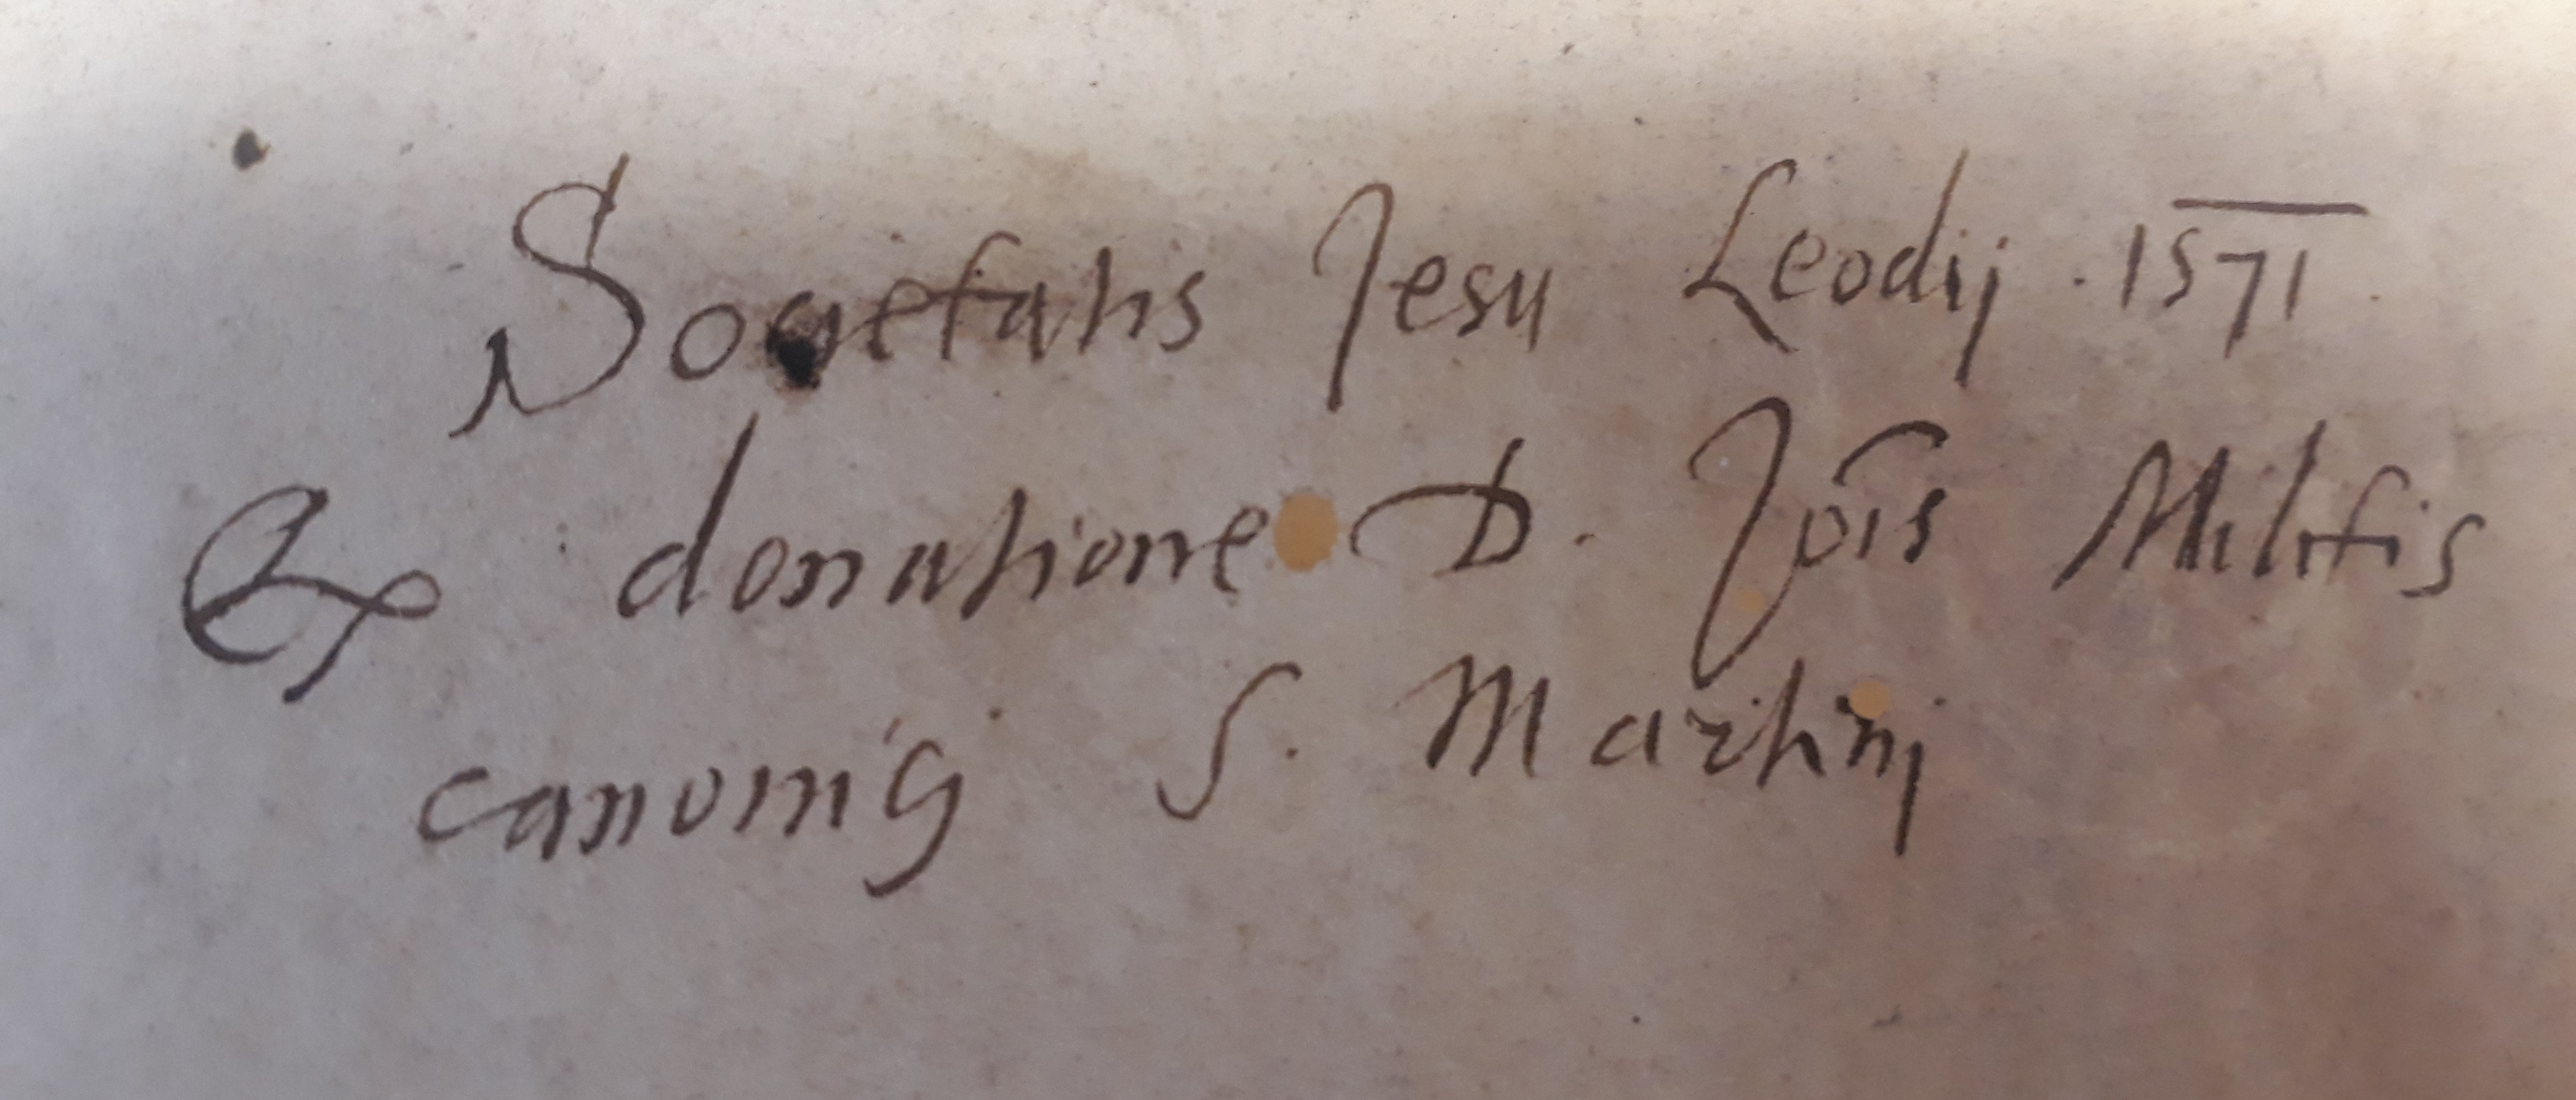 Societatis Jesu Leodij . 1571 .
Ex donatione D. Jōis Militis
canonici S. Martinj